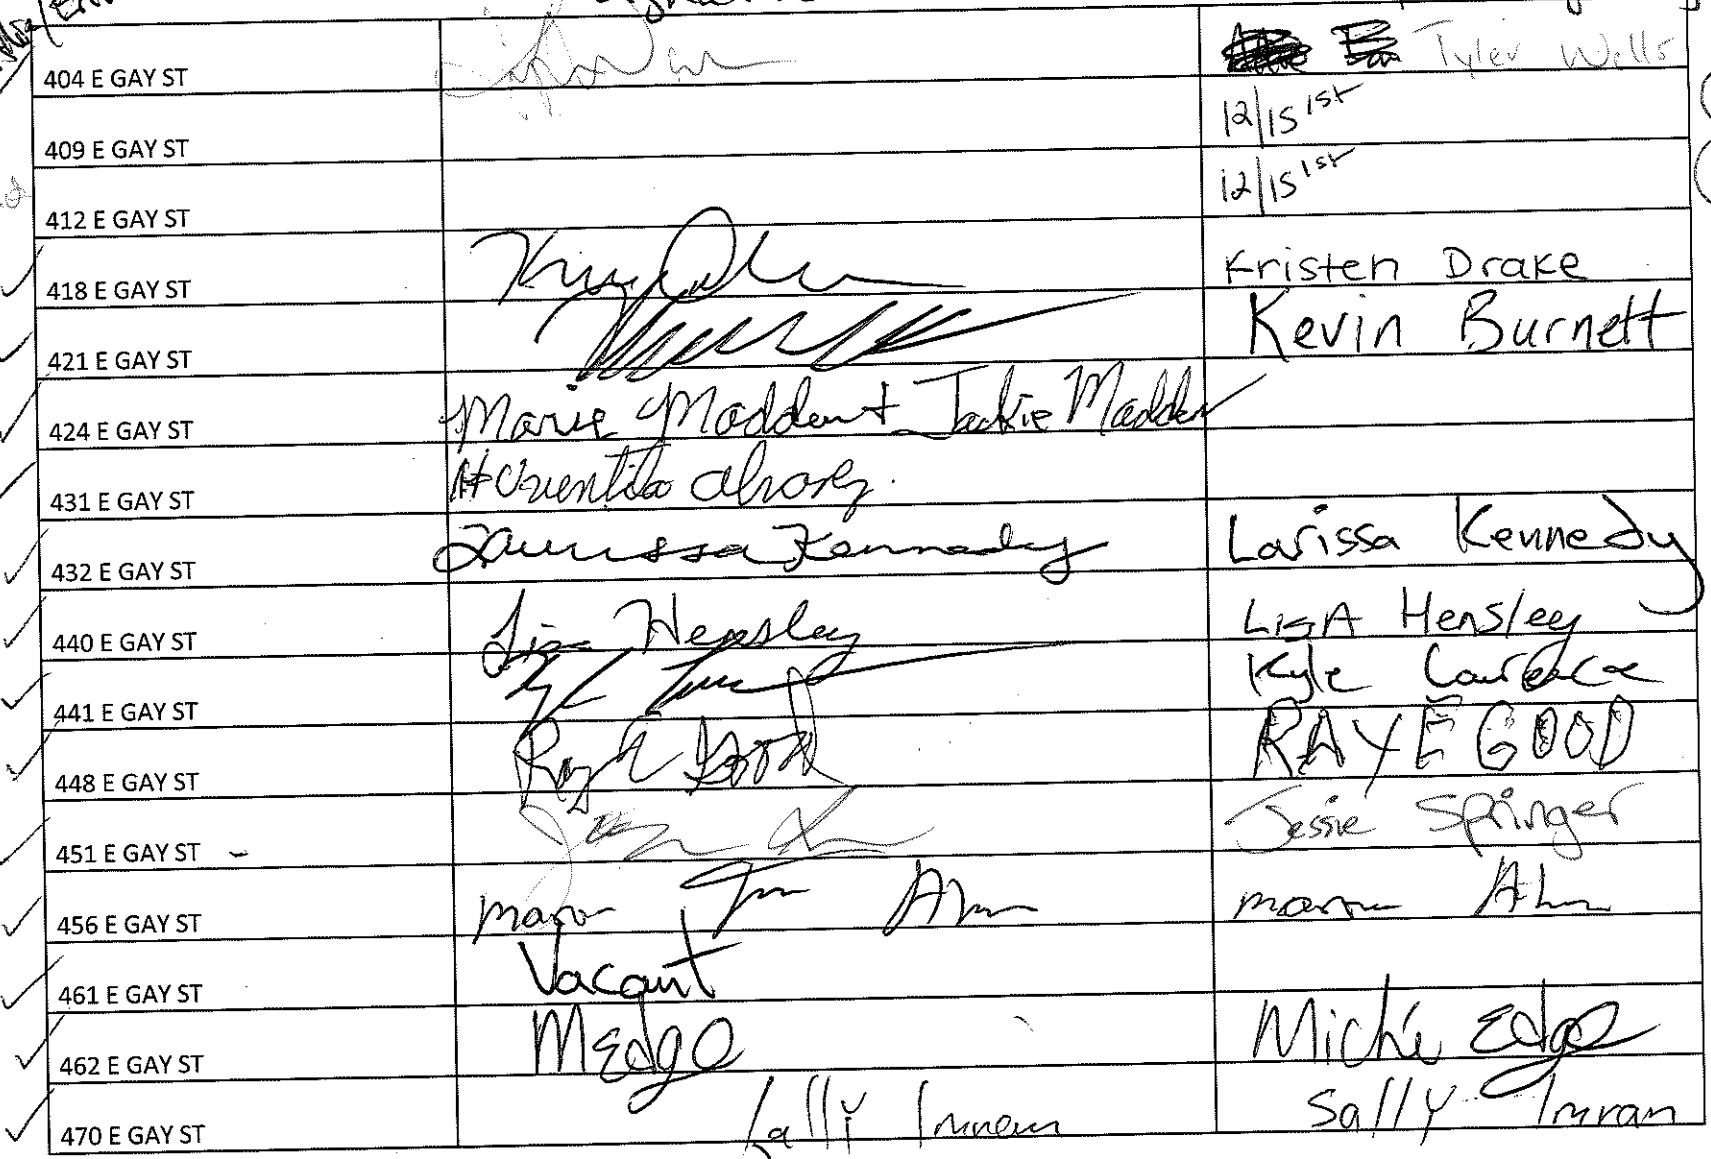 404 E GAY ST Tyler Wells
409 E GAY ST 12/15 1st
412 E GAY ST 12/15 1st
418 E GAY ST Kristen Drake
421 E GAY ST Kevin Burnett
424 E GAY ST Marie Madden + Jackie Madden
431 E GAY ST
432 E GAY ST Larissa Kennedy Larissa Kennedy
440 E GAY ST Lisa Hensley LisA Hensley
441 E GAY ST Kyle Lawrence
448 E GAY ST Ray E Good RAY E GOOD
451 E GAY ST - Jessie Springer
456 E GAY ST
461 E GAY ST Vacant
462 E GAY ST MEdge Edge
470 E GAY ST Sally Imran Sally Imran